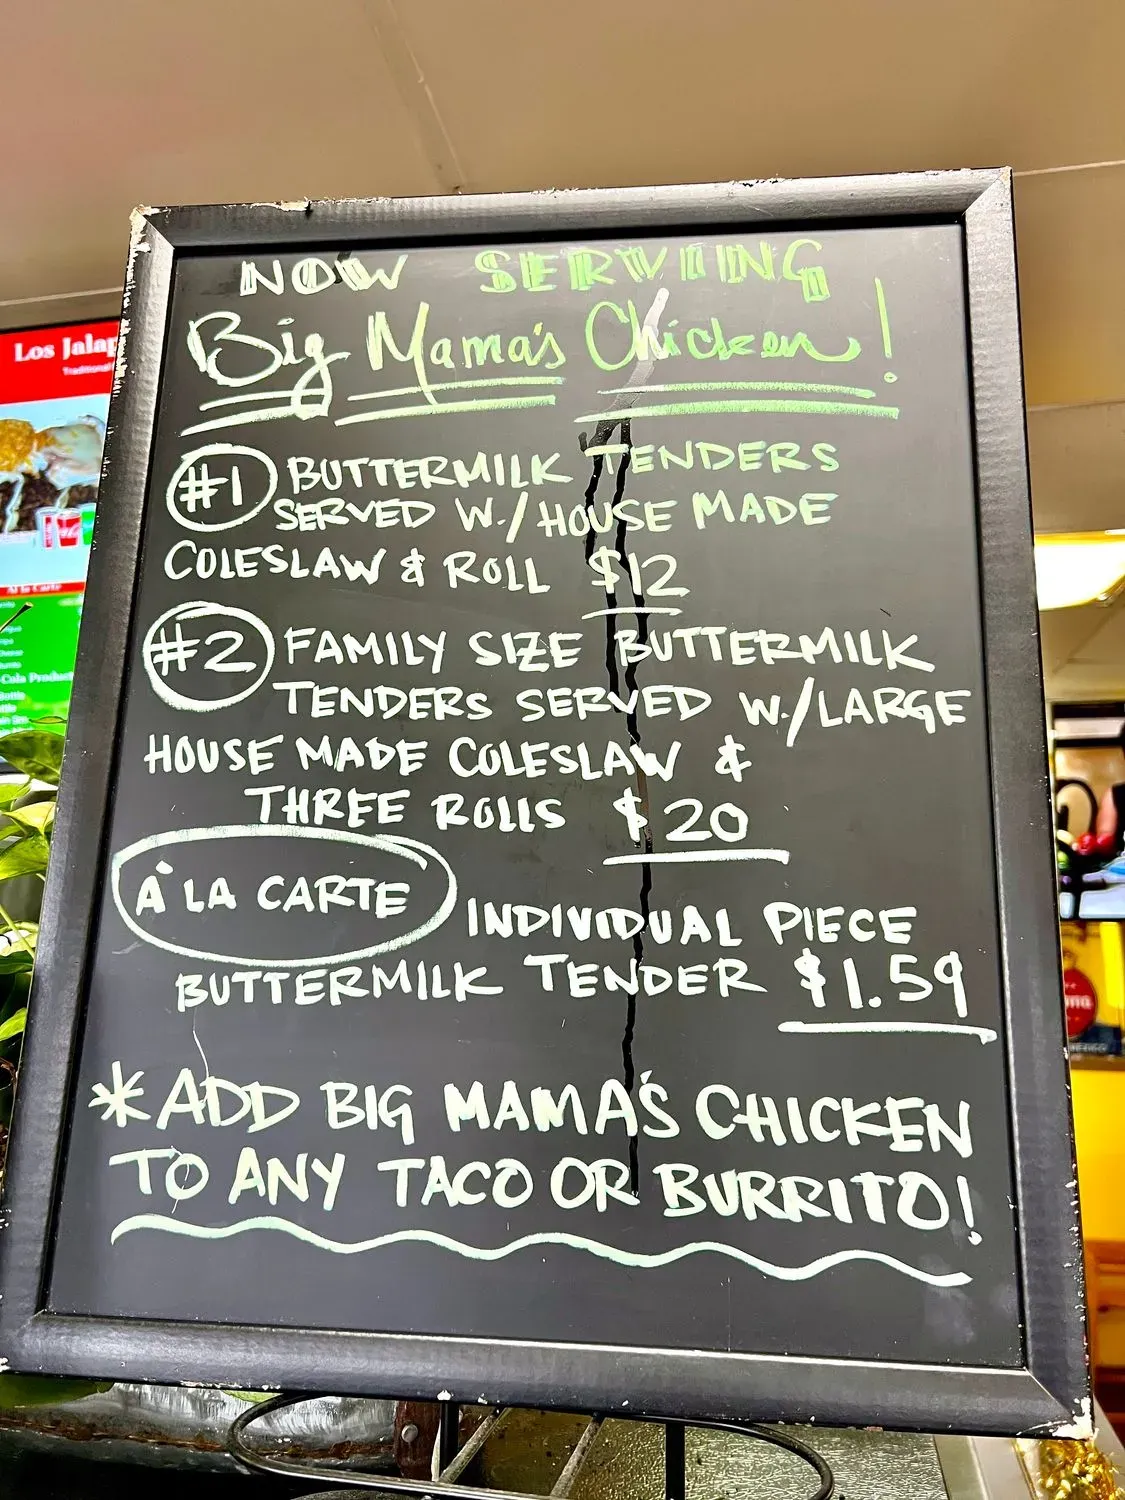 NOW SERVING
Big Mama's Chicken!
#1 BUTTERMILK TENDERS
SERVED W./HOUSE MADE
COLESLAW & ROLL $12
#2 FAMILY SIZE BUTTERMILK
TENDERS SERVED W./LARGE
HOUSE MADE COLESLAW &
THREE ROLLS $20
À LA CARTE INDIVIDUAL PIECE
BUTTERMILK TENDER $1.59
*ADD BIG MAMA'S CHICKEN
TO ANY TACO OR BURRITO!
Los Jalap
Traditional
A la Carte
Cola Product